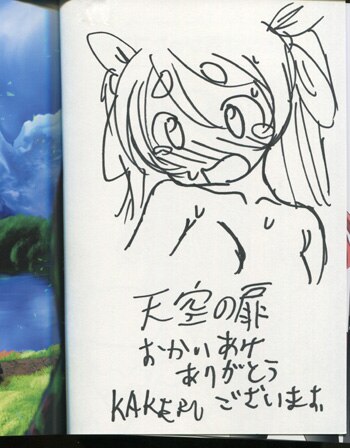 天空の扉
おかいあけ
ありがとう
KAKERU ございます。